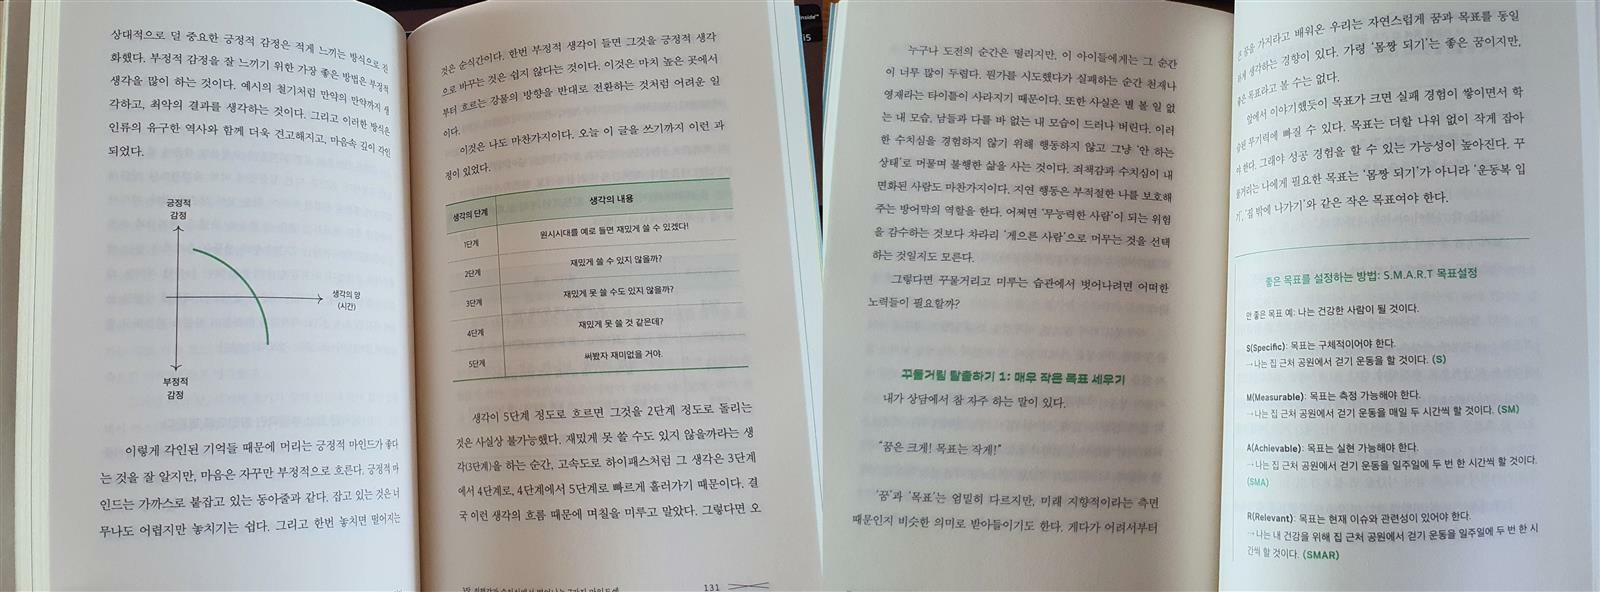 상대적으로 덜 중요한 긍정적 감정은 적게 느끼는 방식으로 진
화했다. 부정적 감정을 잘 느끼기 위한 가장 좋은 방법은 부정적
생각을 많이 하는 것이다. 예시의 철기처럼 만약의 만약까지 생
각하고, 최악의 결과를 생각하는 것이다. 그리고 이러한 방식은
인류의 유구한 역사와 함께 더욱 견고해지고, 마음속 깊이 각인
되었다.
긍정적
감정
생각의 양
(시간)
부정적
감정
이렇게 각인된 기억들 때문에 머리는 긍정적 마인드가 좋다
는 것을 잘 알지만, 마음은 자꾸만 부정적으로 흐른다. 긍정적 마
인드는 가까스로 붙잡고 있는 동아줄과 같다. 잡고 있는 것은 너
무나도 어렵지만 놓치기는 쉽다. 그리고 한번 놓치면 떨어지는
것은 순식간이다. 한번 부정적 생각이 들면 그것을 긍정적 생각
으로 바꾸는 것은 쉽지 않다는 것이다. 이것은 마치 높은 곳에서
부터 흐르는 강물의 방향을 반대로 전환하는 것처럼 어려운 일
이다.
이것은 나도 마찬가지이다. 오늘 이 글을 쓰기까지 이런 과
정이 있었다.
생각의 단계 생각의 내용
1단계 원시시대를 예로 들면 재밌게 쓸 수 있겠다!
2단계 재밌게 쓸 수 있지 않을까?
3단계 재밌게 못 쓸 수도 있지 않을까?
4단계 재밌게 못 쓸 것 같은데?
5단계 써봤자 재미없을 거야.
생각이 5단계 정도로 흐르면 그것을 2단계 정도로 돌리는
것은 사실상 불가능했다. 재밌게 못 쓸 수도 있지 않을까라는 생
각(3단계)을 하는 순간, 고속도로 하이패스처럼 그 생각은 3단계
에서 4단계로, 4단계에서 5단계로 빠르게 흘러가기 때문이다. 결
국 이런 생각의 흐름 때문에 며칠을 미루고 말았다. 그렇다면 오
131
inside™
i5
누구나 도전의 순간은 떨리지만, 이 아이들에게는 그 순간
이 너무 많이 두렵다. 뭔가를 시도했다가 실패하는 순간 천재나
영재라는 타이틀이 사라지기 때문이다. 또한 사실은 별 볼 일 없
는 내 모습, 남들과 다를 바 없는 내 모습이 드러나 버린다. 이러
한 수치심을 경험하지 않기 위해 행동하지 않고 그냥 '안 하는
상태'로 머물며 불행한 삶을 사는 것이다. 죄책감과 수치심이 내
면화된 사람도 마찬가지이다. 지연 행동은 부적절한 나를 보호해
주는 방어막의 역할을 한다. 어쩌면 '무능력한 사람'이 되는 위험
을 감수하는 것보다 차라리 '게으른 사람'으로 머무는 것을 선택
하는 것일지도 모른다.
그렇다면 꾸물거리고 미루는 습관에서 벗어나려면 어떠한
노력들이 필요할까?
꾸물거림 탈출하기 1: 매우 작은 목표 세우기
내가 상담에서 참 자주 하는 말이 있다.
"꿈은 크게! 목표는 작게!"
'꿈'과 '목표'는 엄밀히 다르지만, 미래 지향적이라는 측면
때문인지 비슷한 의미로 받아들이기도 한다. 게다가 어려서부터
꿈을 가지라고 배워온 우리는 자연스럽게 꿈과 목표를 동일
하게 생각하는 경향이 있다. 가령 '몸짱 되기'는 좋은 꿈이지만,
좋은 목표라고 볼 수는 없다.
앞에서 이야기했듯이 목표가 크면 실패 경험이 쌓이면서 학
습된 무기력에 빠질 수 있다. 목표는 더할 나위 없이 작게 잡아
야 한다. 그래야 성공 경험을 할 수 있는 가능성이 높아진다. 꾸
물거리는 나에게 필요한 목표는 '몸짱 되기'가 아니라 '운동복 입
기', '집 밖에 나가기'와 같은 작은 목표여야 한다.
좋은 목표를 설정하는 방법: S.M.A.R.T 목표설정
안 좋은 목표 예: 나는 건강한 사람이 될 것이다.
S(Specific): 목표는 구체적이어야 한다.
→나는 집 근처 공원에서 걷기 운동을 할 것이다. (S)
M(Measurable): 목표는 측정 가능해야 한다.
→나는 집 근처 공원에서 걷기 운동을 매일 두 시간씩 할 것이다. (SM)
A(Achievable): 목표는 실현 가능해야 한다.
→나는 집 근처 공원에서 걷기 운동을 일주일에 두 번 한 시간씩 할 것이다.
(SMA)
R(Relevant): 목표는 현재 이슈와 관련성이 있어야 한다.
→나는 내 건강을 위해 집 근처 공원에서 걷기 운동을 일주일에 두 번 한 시
간씩 할 것이다. (SMAR)